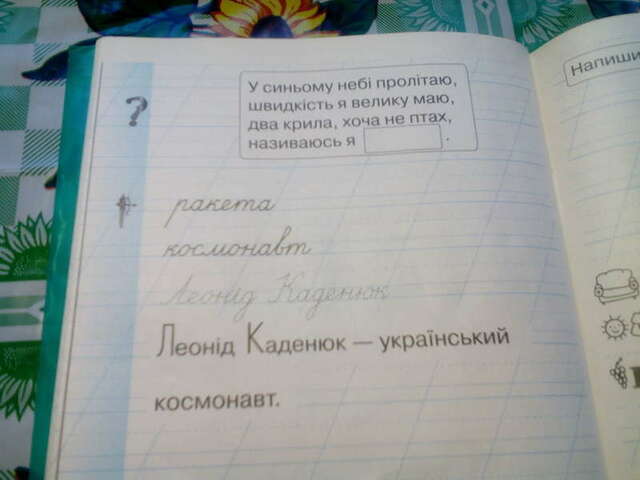 У синьому небі пролітаю,
швидкість я велику маю,
два крила, хоча не птах,
називаюсь я .
ракета
космонавт
Леонід Каденюк
Леонід Каденюк — український
космонавт.